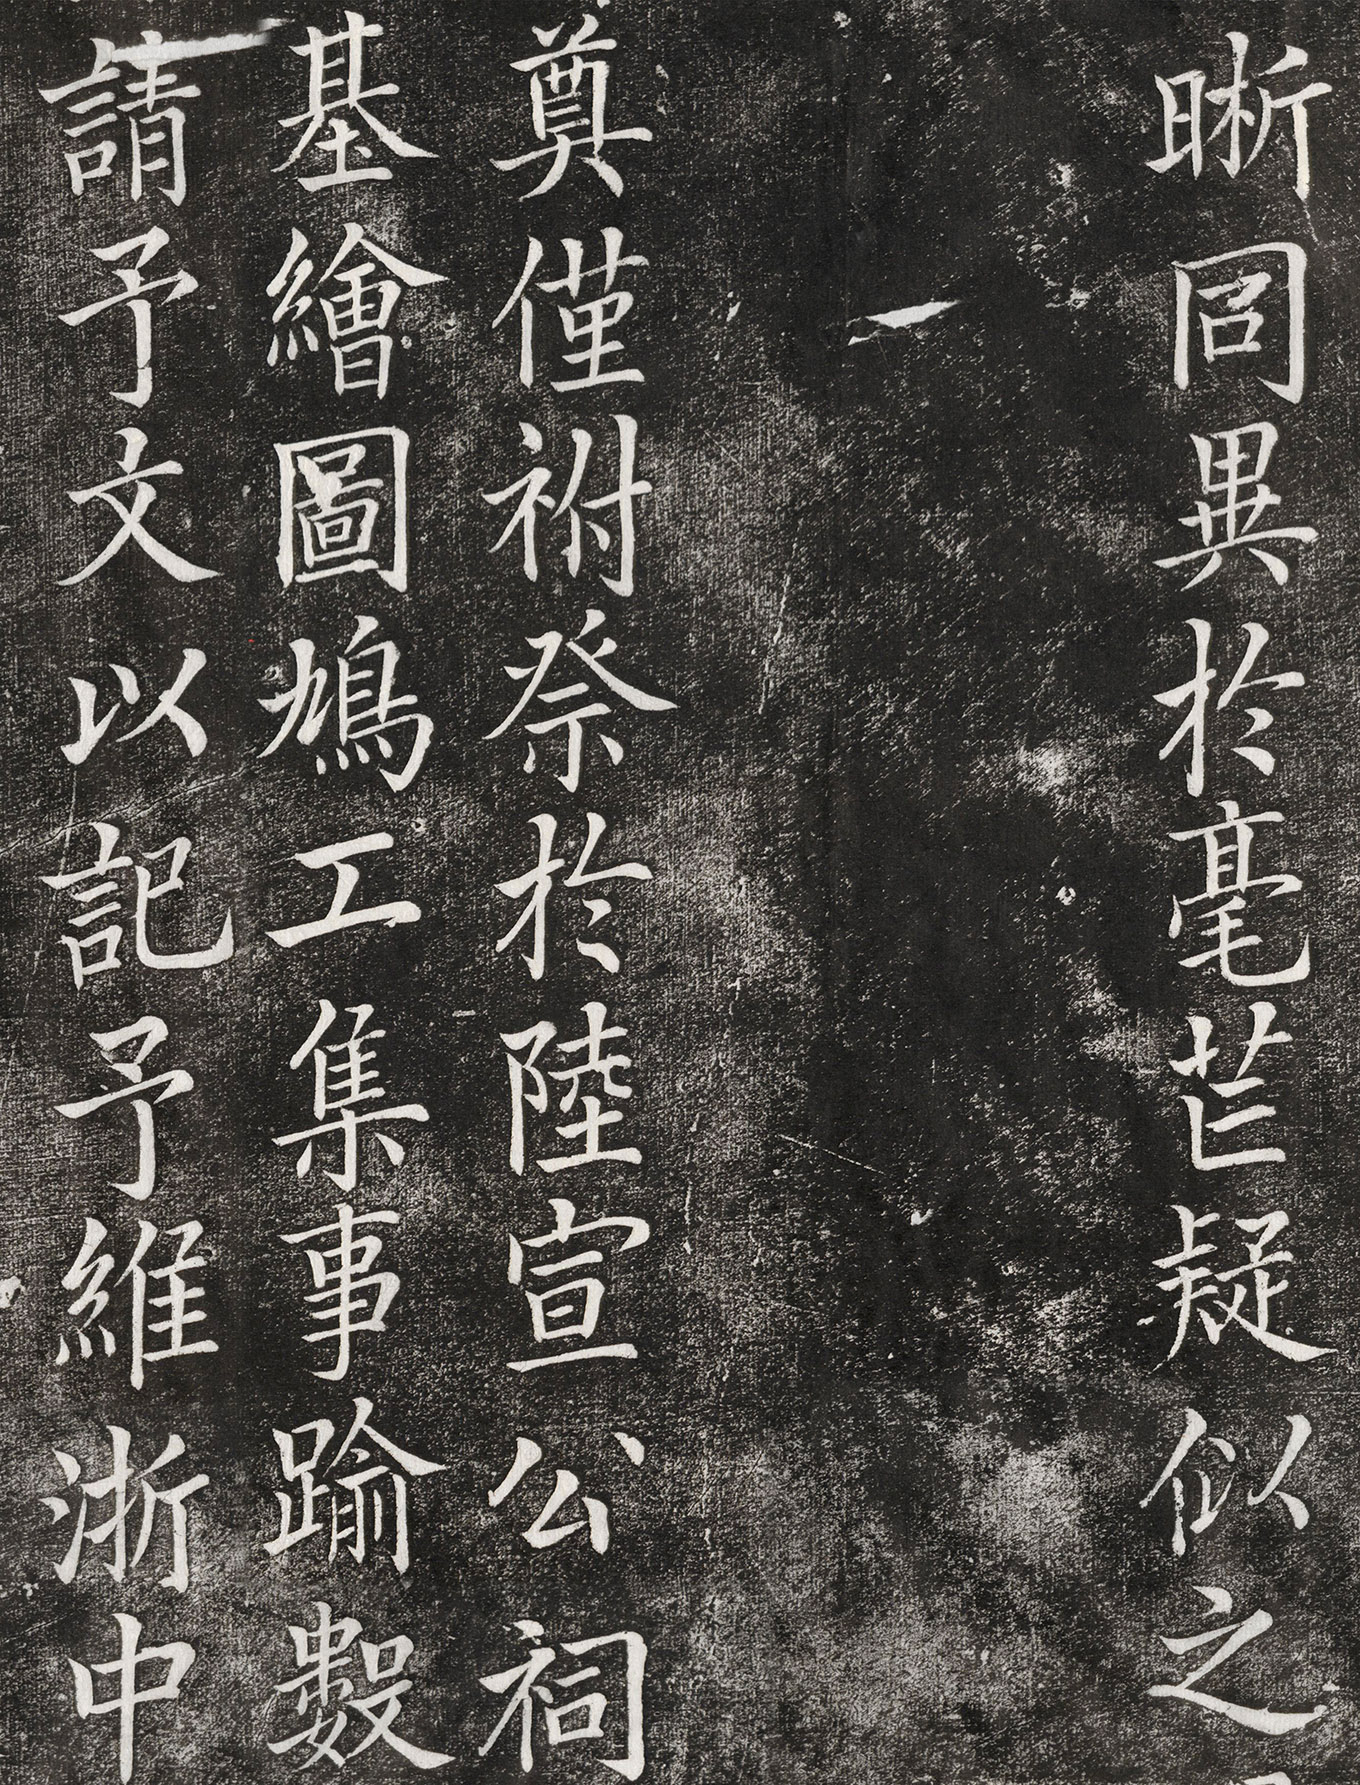 晰同異於毫芒疑似之
奠僅祔祭於陸宣公祠
基繪圖鳩工集事踰數
請予文以記予維浙中